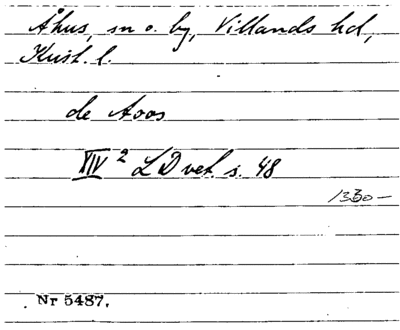 Åhus, sn o. by, Villands hd,
Krist. l.
de Aoos
XIV 2 LD vet. s. 48
1330 –
Nr 5487.